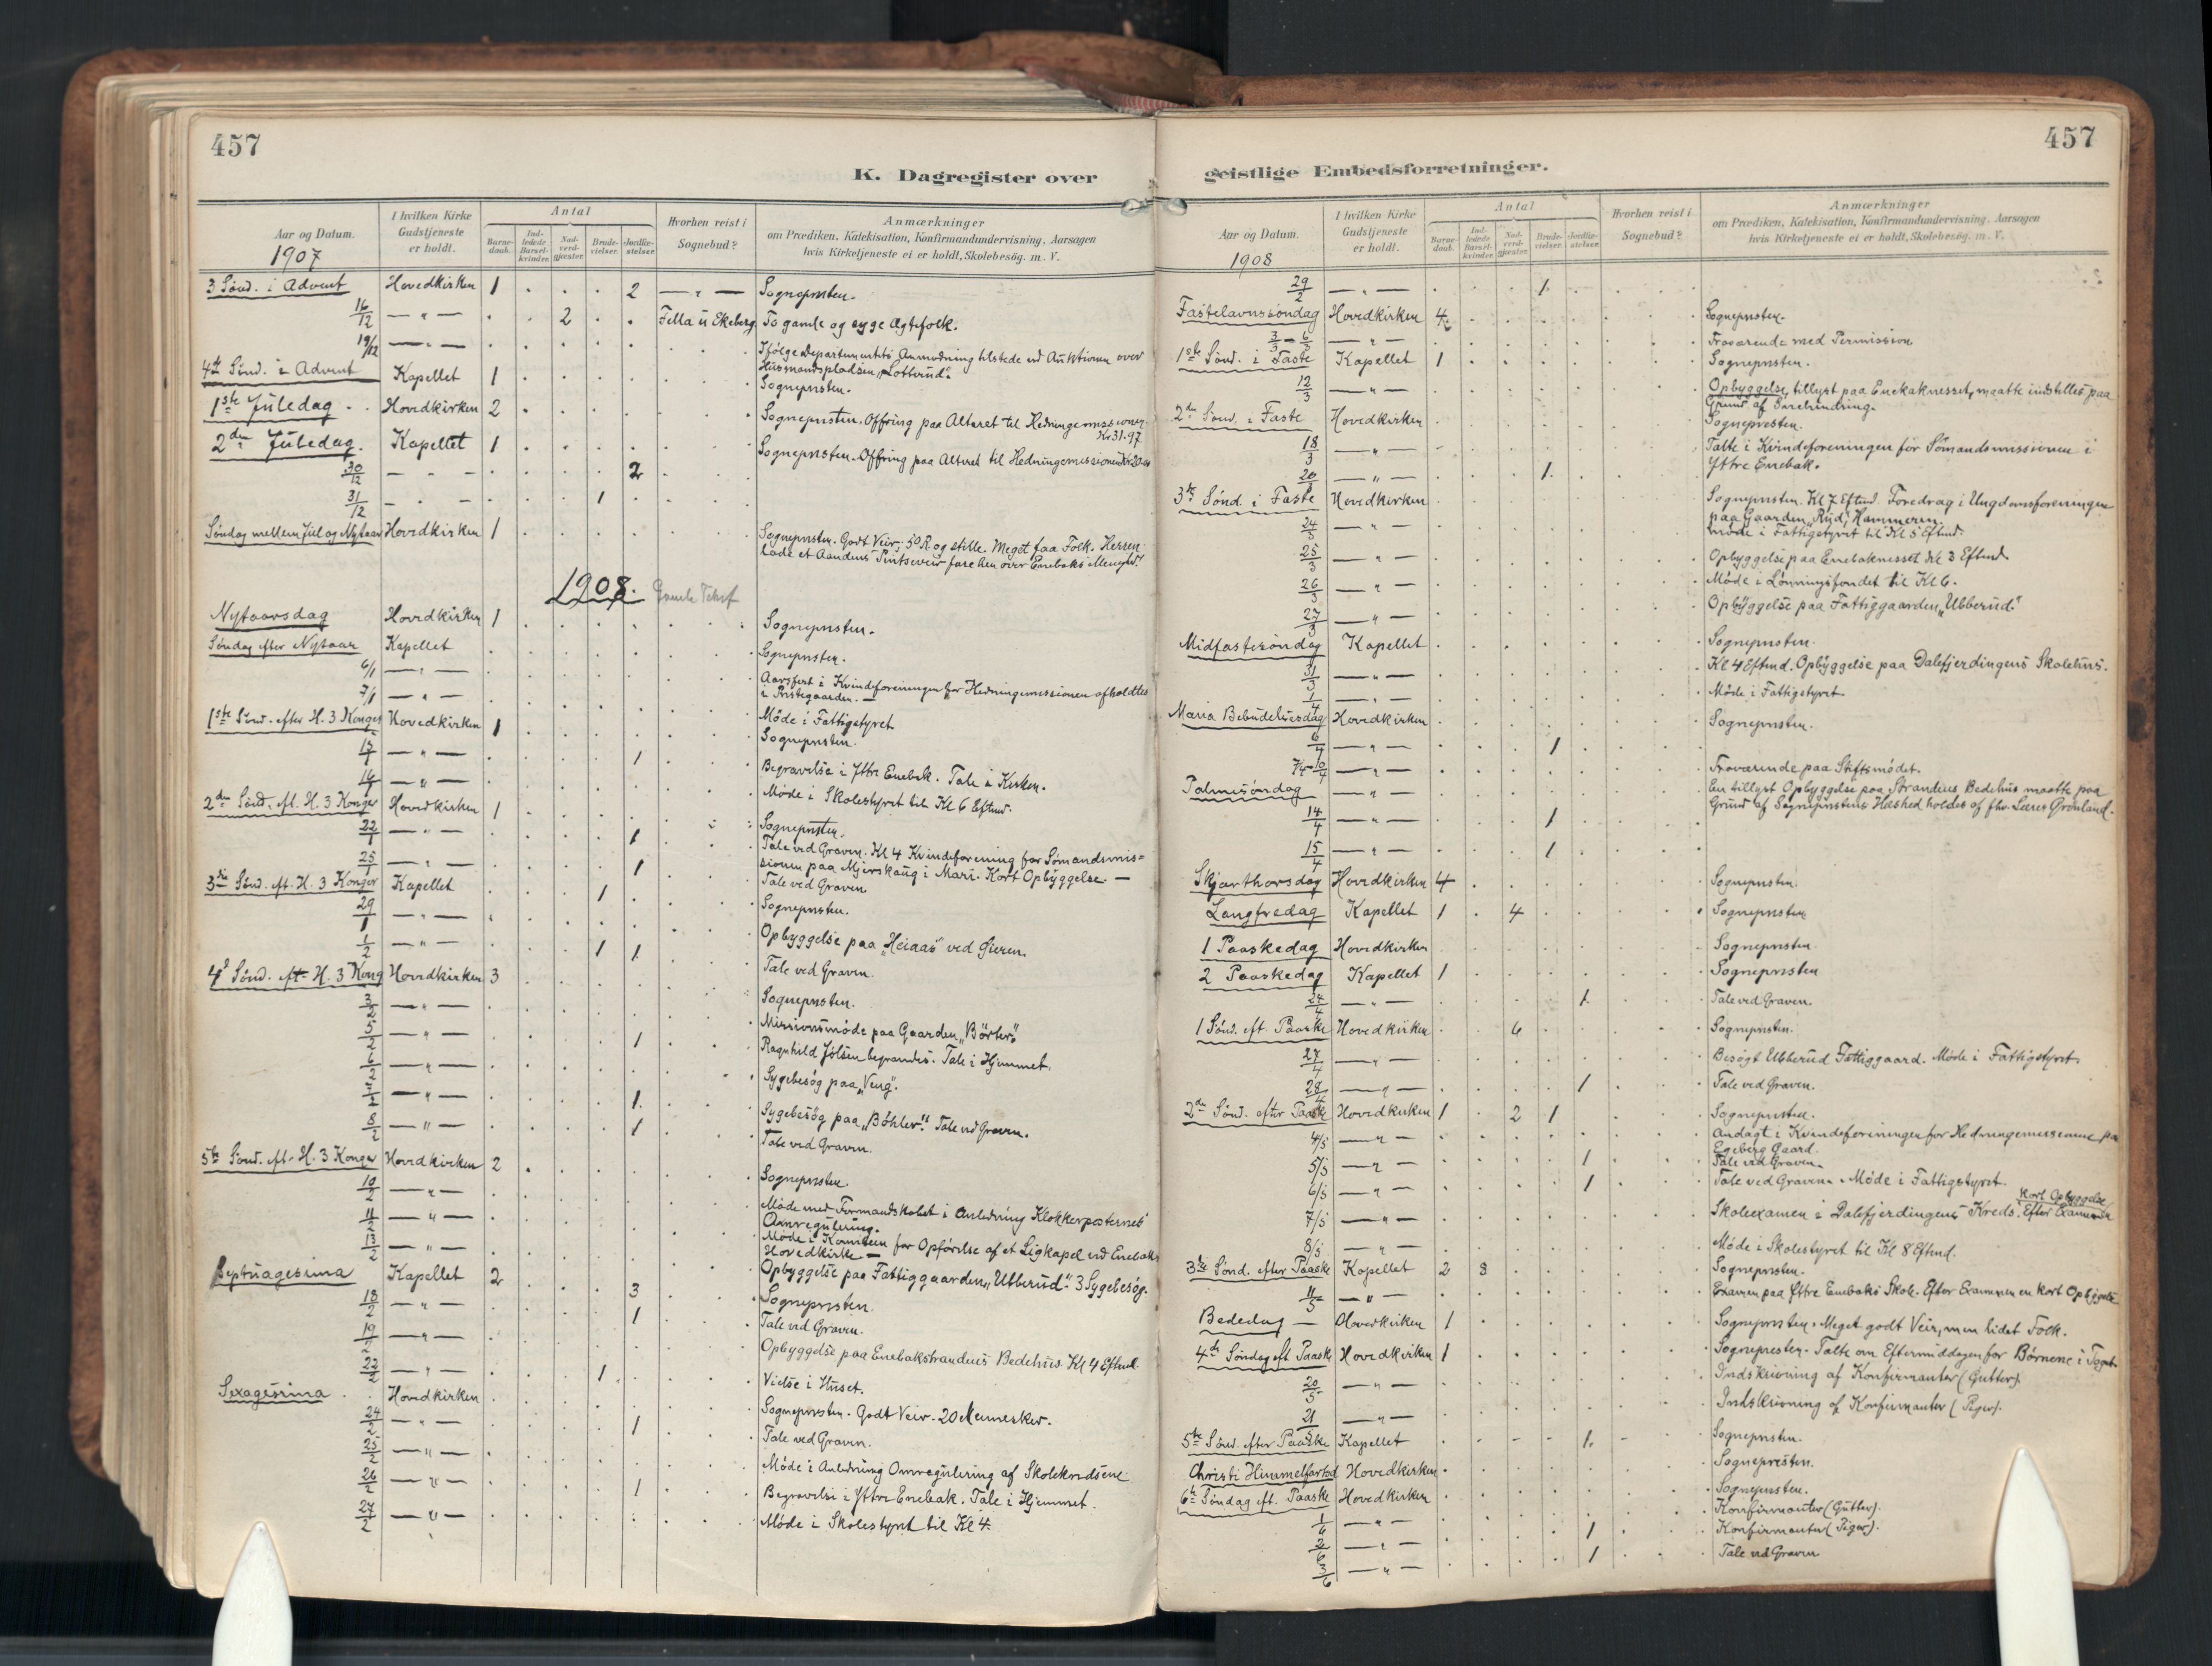 457
K. Dagregister over
Aar og Datum.
1907
I hvilken Kirke Gudstjeneste er holdt.
Antal
Barne-daab.
Ind-ledede Barsel-kvinder.
Nad-verd-gjæster.
Brude-vielser.
Jordfæ-stelser.
Hvorhen reist i Sognebud?
Anmærkninger
om Prædiken, Katekisation, Konfirmandundervisning, Aarsagen
hvis Kirketjeneste ei er holdt, Skolebesøg. m. V.
3 Sønd. i Advent Hovedkirken 1 2 — " — Sognepresten.
16/12 — " — 2 Fella u Ekeberg To gamle og syge Ægtefolk.
19/12 — " — Ifølge Departementets Anmodning tilstede ved Auktionen over
Husmandspladsen „Lotterud".
4de Sønd. i Advent Kapellet 1 Sognepresten.
1ste Juledag Hovedkirken 2 Sognepresten. Offring paa Alteret til Hedningemissionen
Kr. 31.97
2den Juledag. Kapellet 1 Sognepresten. Offring paa Alteret til Hedningemissionen
30/12 — " — 2
31/12 — " — 1
Søndag mellem Jul og Nytaar Hovedkirken 1 Sognepresten. Godt Veir, 5°R og stille. Meget faa Folk. Herren
lade et Aandens Pintseveir fare hen over Enebaks Menighed.
1908.
Nytaarsdag Hovedkirken 1 Sognepresten.
Søndag efter Nytaar Kapellet Sognepresten.
6/1 — " — Aarsfest i Kvindeforeningen for Hedningemissionen afholdtes
i Prestegaarden. —
7/1 — " — Møde i Fattigstyret
1ste Sønd. efter H. 3 Konger Hovedkirken 1 Sognepresten.
— " — 1 Begravelse i Ytre Enebak. Tale i Kirken.
— " — Møde i Skolestyret til Kl 6 Eftmd.
2den Sønd. eft. H. 3 Konger Hovedkirken 1 Sognepresten.
22/1 — " — 1 Tale ved Graven. Kl 4 Kvindeforening for Sømandsmis=
sionen paa Mjerskaug i Mari. Kort Opbyggelse —
25/1 — " — 1 Tale ved Graven
3die Sønd. eft. H. 3 Konger Kapellet 1 Sognepresten.
29/1 — " — Opbyggelse paa „Heiaas" ved Øieren.
1/2 — " — 1 1 Tale ved Graven.
4de Sønd. eft. H. 3 Kong Hovedkirken 3 Sognepresten.
3/2 — " — Missionsmøde paa Gaarden „Børter".
5/2 — " — 1 Ragnhild Jølsen begravedes. Tale i Hjemmet.
6/2 — " — Sygebesøg paa „Veng".
7/2 — " — 1. Sygebesøg paa „Bøhler". Tale ved Graven.
8/2 — " — 1 Tale ved Graven.
5te Sønd. eft. H. 3 Konger Hovedkirken 2 Sognepresten.
10/2 — " — Møde med Formandskabet i Anledning Klokkerposternes
Omregulering.
11/2 — " — Møde i Komiteen for Opførelse af et Ligkapel ved Enebaks
Hovedkirke —
13/2 — " — Opbyggelse paa Fattiggaarden „Ubberud". 3 Sygebesøg.
Septuagesima Kapellet 2 3 Sognepresten.
18/2 — " — 1 Tale ved Graven.
19/2 — " — Opbyggelse paa Enebakstrandens Bedehus Kl 4 Eftmd.
22/2 — " — 1 Vielse i Huset.
Sexagesima Hovedkirken Sognepresten. Godt Veir. 20 Mennesker.
24/2 — " — 1 Tale ved Graven.
25/2 — " — Møde i Anledning Omregulering af Skolekredsene
26/2 — " — 1 Begravelse i Ytre Enebak. Tale i Hjemmet.
27/2 — " — Møde i Skolestyret til Kl 4.
457
geistlige Embedsforretninger.
Aar og Datum.
1908
I hvilken Kirke Gudstjeneste er holdt.
Antal
Barne-daab.
Ind-ledede Barsel-kvinder.
Nad-verd-gjæster.
Brude-vielser.
Jordfæ-stelser.
Hvorhen reist i Sognebud?
Anmærkninger
om Prædiken, Katekisation, Konfirmandundervisning, Aarsagen
hvis Kirketjeneste ei er holdt, Skolebesøg. m. V.
29/2 — " — 1
Fastelavnssøndag Hovedkirken 4 Sognepresten.
3/3 – 6/3 — " — Fraværende med Permission.
1ste Sønd. i Faste Kapellet 1 Sognepresten.
12/3 — " — Opbyggelse, tillyst paa Enebaknesset, maatte indstilles paa
Grund af Snehindring.
2den Sønd. i Faste Hovedkirken Sognepresten.
18/3 — " — Talte i Kvindeforeningen for Sømandsmissionen i
Yttre Enebak.
20/3 — " — 1
3die Sønd. i Faste Hovedkirken Sognepresten. Kl 7 Eftmd. Foredrag i Ungdomsforeningen
paa Gaarden „Ryd", Hammeren.
24/3 — " — Møde i Fattigstyret til Kl 5 Eftmd.
25/3 — " — Opbyggelse paa Enebaknesset Kl 3 Eftmd.
26/3 — " — Møde i Lønningsfondet til Kl 6.
27/3 — " — Opbyggelse paa Fattiggaarden „Ubberud."
Midfastesøndag Kapellet Sognepresten.
31/3 — " — Kl 4 Eftmd. Opbyggelse paa Dalefjerdingens Skolehus.
1/4 — " — Møde i Fattigstyret.
Maria Bebudelsesdag Hovedkirken Sognepresten.
6/4 — " — 1
7/4–10/4 — " — Fraværende paa Stiftsmødet.
Palmesøndag — " — En tillyst Opbyggelse paa Strandens Bedehus maatte paa
Grund af Sognprestens Hæshed holdes af fhv. Lærer Grønland.
14/4 — " — 1
15/4 — " — 1
Skjærthorsdag Hovedkirken 4 Sognepresten.
Langfredag Kapellet 1 4 Sognepresten
1 Paaskedag Hovedkirken Sognepresten
2 Paaskedag Kapellet 1 Sognepresten
24/4 — " — 1 Tale ved Graven.
1 Sønd. eft. Paaske Hovedkirken 6 Sognepresten.
27/4 — " — Besøgt Ubberud Fattiggaard. Møde i Fattigstyret.
28/4 — " — 1 Tale ved Graven.
2den Sønd. efter Paaske Hovedkirken 1 2 1 Sognepresten.
4/5 — " — Andagt i Kvindeforeningen for Hedningemissionen paa
Egeberg Gaard.
5/5 — " — 1 Tale ved Graven.
6/5 — " — 1 Tale ved Graven. Møde i Fattigstyret.
7/5 — " — Skoleexamen i Dalefjerdingens Kreds. Efter Examenen
Kort Opbyggelse
8/5 — " — Møde i Skolestyret til Kl 8 Eftmd.
3die Sønd. efter Paaske Kapellet 2 8 Sognepresten.
11/5 — " — Examen paa Yttre Enebaks Skole. Efter Examenen en kort Opbyggelse
Bededag — Hovedkirken 1 Sognepresten. Meget godt Veir, men lidet Folk.
4de Søndag eft Paaske Hovedkirken 1 Sognepresten. Talte om Eftermiddagen for Børnene i
20/5 — " — Indskrivning af Konfirmanter (Gutter).
21/5 — " — Indskrivning af Konfirmanter (Piger).
5te Sønd. efter Paaske Kapellet 1. Sognepresten.
Christi Himmelfartsd Hovedkirken Sognepresten.
6te Søndag eft. Paaske Hovedkirken Sognepresten.
1/6 — " — Konfirmanter (Gutter).
2/6 — " — 1 Konfirmanter (Piger).
3/6 — " — 1 Tale ved Graven